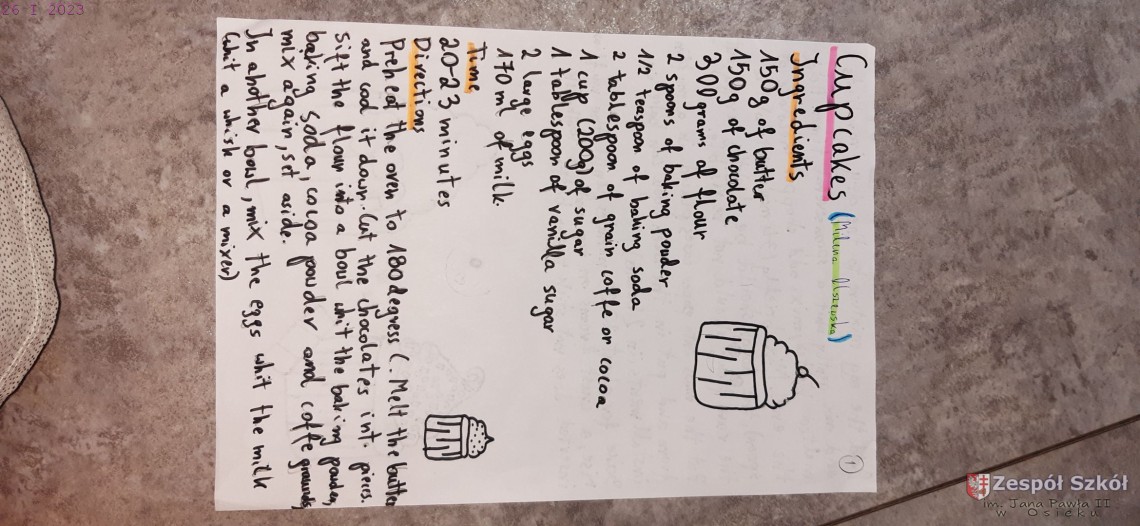 26 I 2023
Cupcakes (Milena Olszewska)
Ingredients
150g of butter
150g of chocolate
300 grams of flour
2 spoons of baking powder
1/2 teaspoon of baking soda
2 tablespoon of grain coffe or cocoa
1 cup (200g) of sugar
1 tablespoon of vanilla sugar
2 large eggs
170 ml of milk.
Time
20-23 minutes
Directions
Preheat the oven to 180 degress C. Melt the butter
and cool it down. Cut the chocolates int. pieces.
Sift the flour into a bowl whit the baking powder,
baking soda, cocoa powder and coffe grounds,
mix again, set aside.
In another bowl, mix the eggs whit the milk
(whit a whisk or a mixer)
1
Zespół Szkół
im. Jana Pawła II
w Osieku